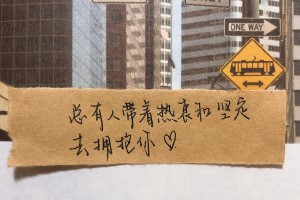 ONE WAY
总有人带着热衷和坚定
去拥抱你♡